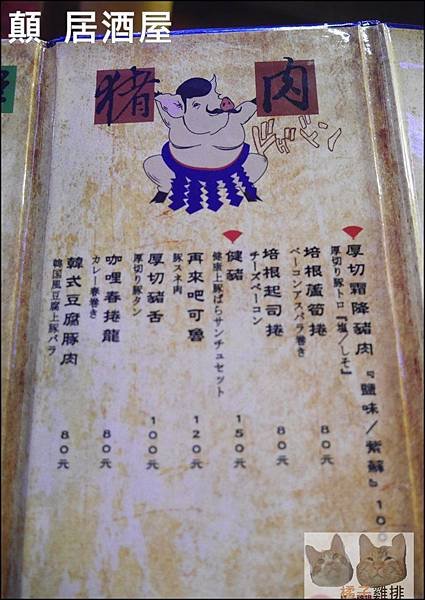 顛 居酒屋
猪肉
ドドドドン
厚切霜降豬肉『鹽味/紫蘇』
厚切り豚トロ『塩/しそ』
培根蘆筍捲 80元
ベーコンアスパラ巻き
培根起司捲 80元
チーズベーコン
健豬 150元
健康上豚ばらサンチュセット
再來吧可魯 120元
豚スネ肉
厚切豬舌 100元
厚切り豚タン
咖哩春捲龍 80元
カレー春巻き
韓式豆腐豚肉 80元
韓国風豆腐上豚バラ
橘子雞排